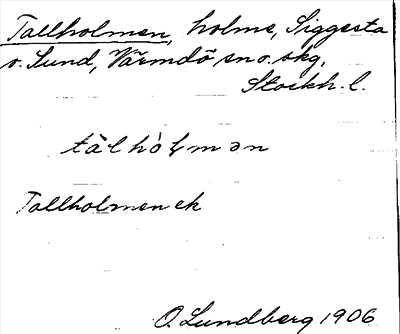 Tallholmen, holme, Siggesta
o. Lund, Värmdö sn o. skg,
Stockh. l.
tàlhòḷmən
Tallholmen ek
O. Lundberg 1906